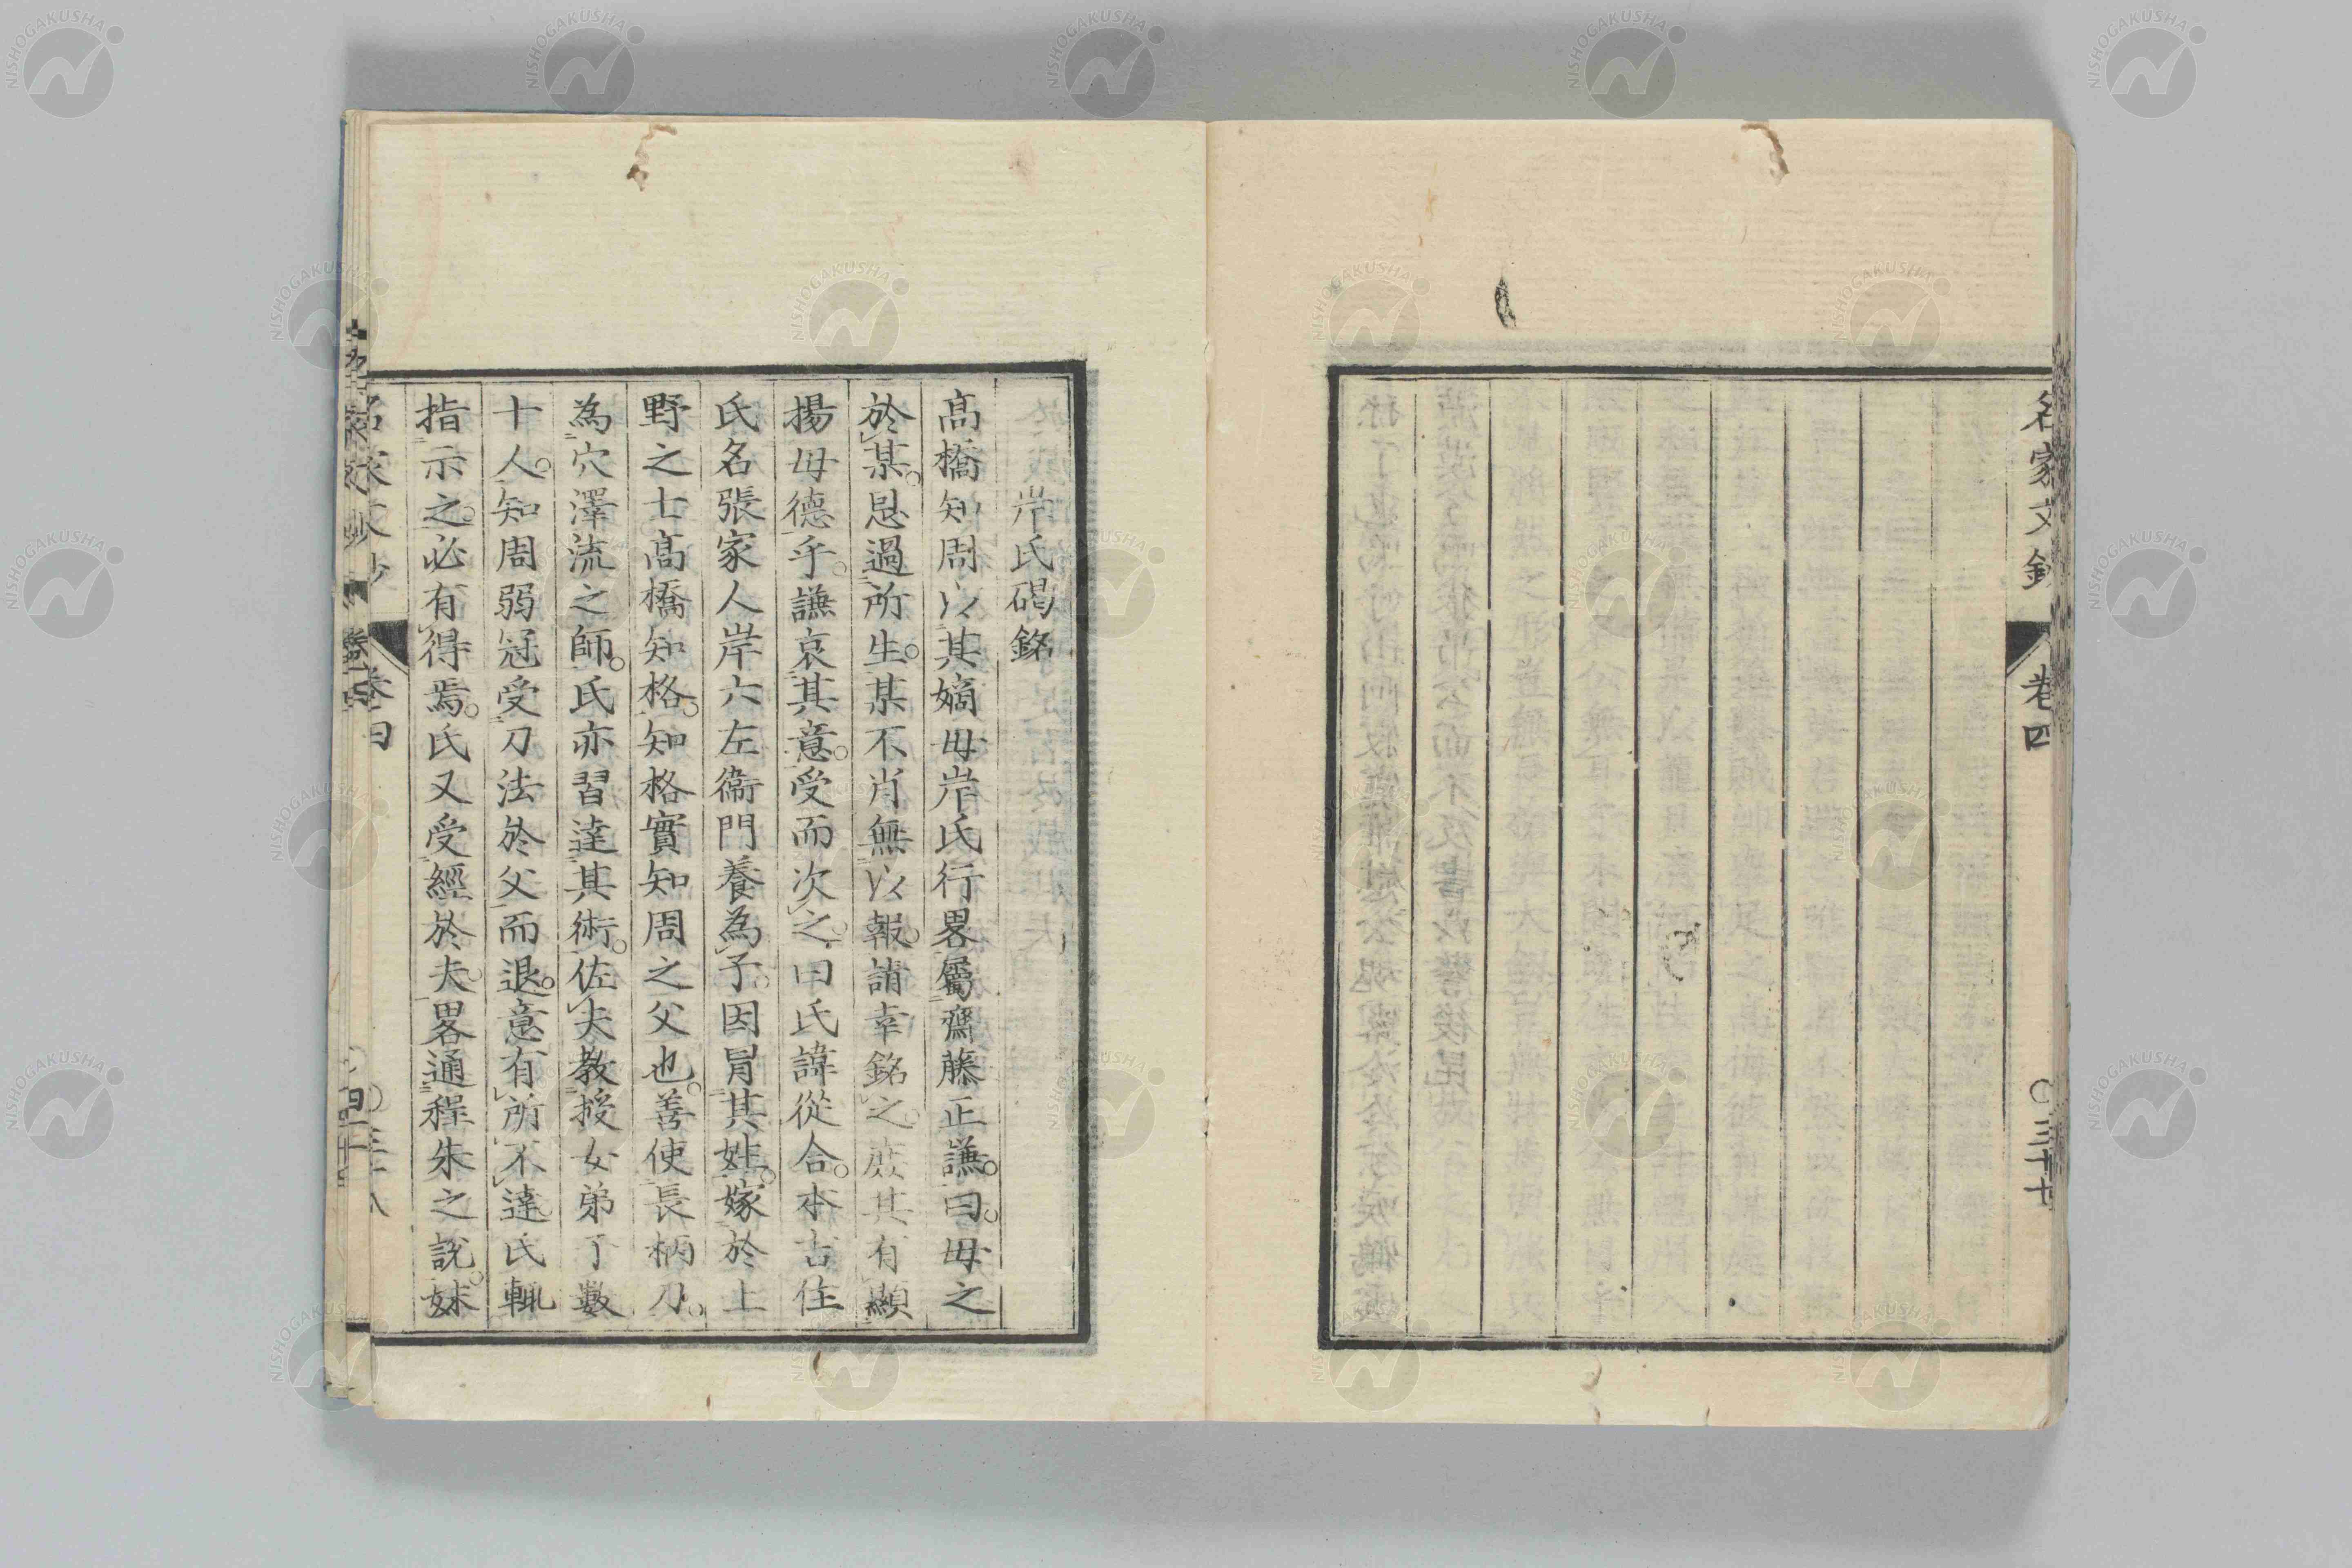 名家文鈔
卷四
〇三十七
岸氏碣銘
高橋知周以其嫡母岸氏行畧屬齋藤正謙曰母之
於某恩過所生某不肖無以報請幸銘之庶其有顯
揚母德乎謙哀其意受而次之曰氏諱從合本古住
氏名張家人岸六左衞門養為子因冐其姓嫁於上
野之士高橋知格知格實知周之父也善使長柄刀
為穴澤流之師氏亦習達其術佐夫教授女弟子數
十人知周弱冠受刀法於父而退意有所不達氏輒
指示之必有得焉氏又受經於夫畧通程朱之說妹
NISHOGAKUSHA